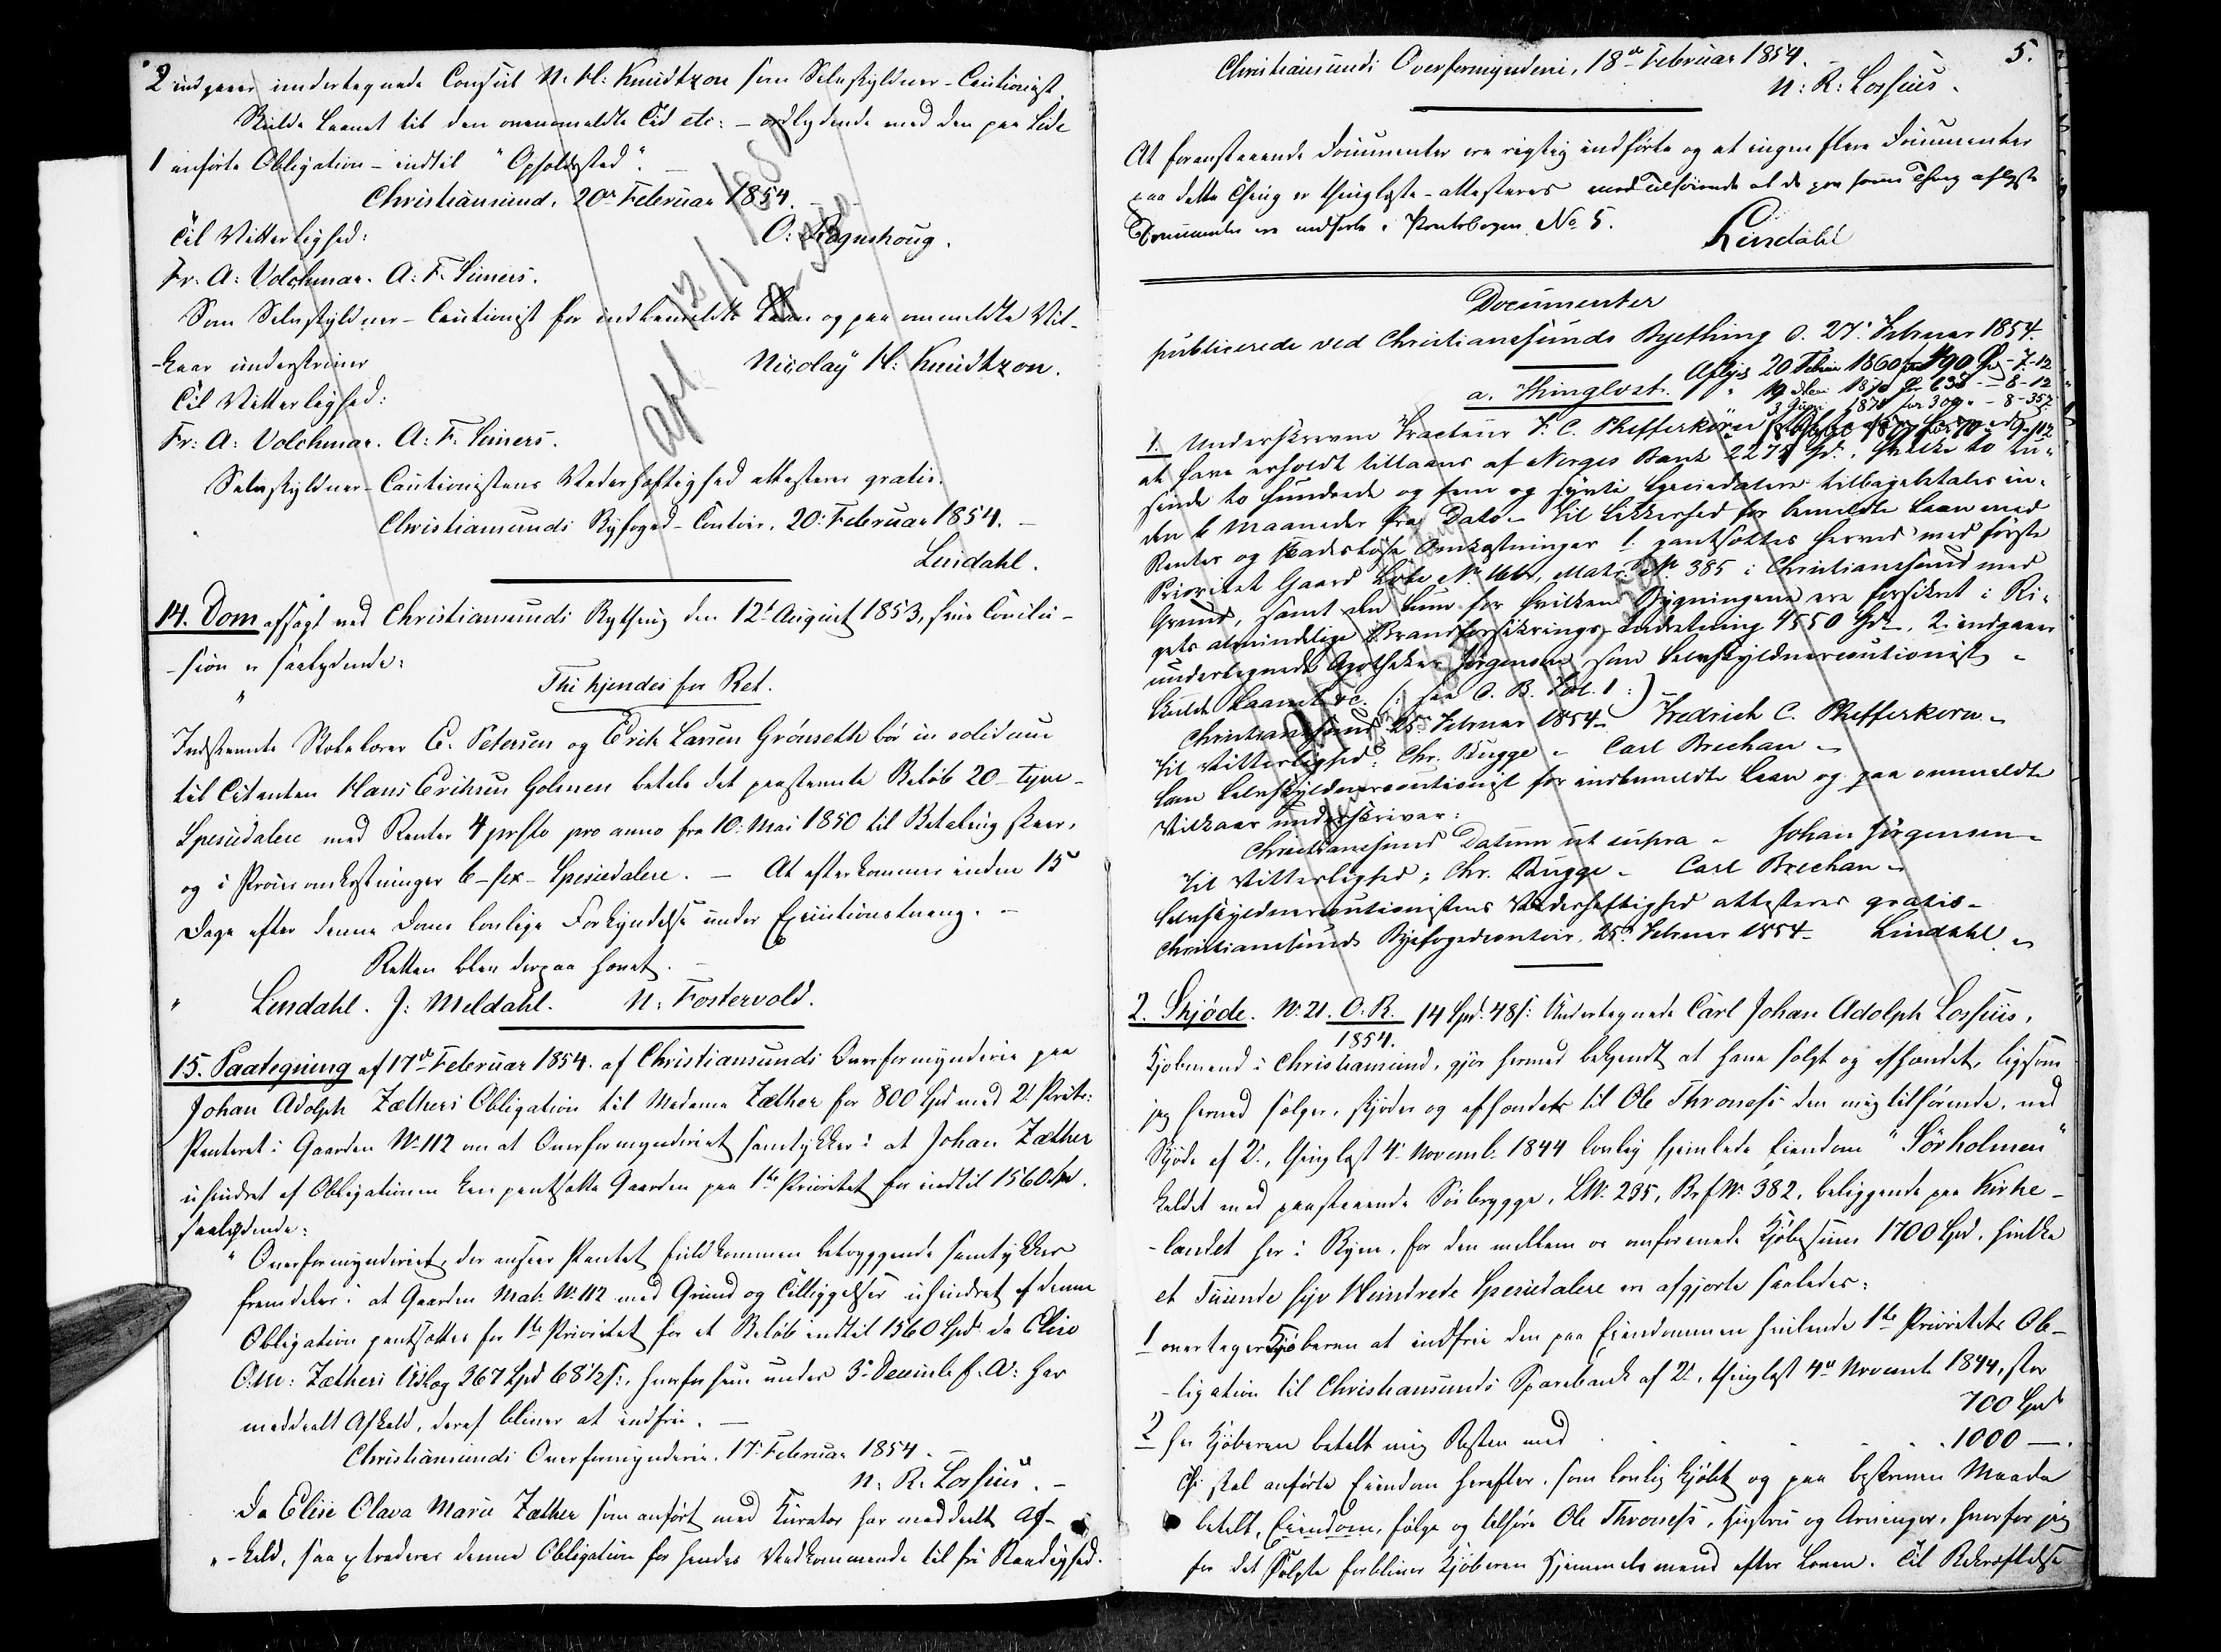 2 indgaaer undertegnede Consul N: H: Knudtzon som Selvskyldner-Cautionist.
Skulde Laanet til den ovenomeldte Tid etc: - ordlydende med den paa Side
1 anførte Obligation - indtil "Opholdssted".
Christiansund, 20de Februar 1854.
Til Vitterlighed: O: Rognshoug.
Fr: A: Volchmar. A: F. Siiners.
Som Selvskyldner-Cautionist for indbemeldte Laan og paa ommeldte Vil-
-kaar underskriver Nicolaÿ H: Knudtzon.
Til Vitterlighed:
Fr: A: Volchmar. A: F. Siiners.
Selvskyldner-Cautionistens Vederhæftighed attesteres gratis.
Christiansunds Byfoged-Contoir, 20: Februar 1854. -
Lindahl.
14. Dom afsagt ved Christiansunds Bything den 12te August 1853, hvis Conclu-
-sion er saalydende:
Thi kjendes for Ret.
Indstevnte E. Petersen og Erik Larsen Grønseth bør in solidum
til Citanten Hans Eriksen Golmen betale det paastevnte Beløb 20 - tyve -
Speciedalere med Renter 4 prCto pro anno fra 10: Mai 1850 til Betaling skeer,
og i Procesomkostninger 6 - sex - Speciedalere. - At efterkommes inden 15
Dage efter denne Doms lovlige Forkyndelse under Executionstvang. -
Retten blev derpaa hævet. -
Lindahl. J: Meldahl. N: Fostervold.
15. Paategning af 17de Februar 1854 af Christiansunds Overformynderie paa
Johan Adolph Zæthers Obligation til Madame Zæther for 800 Spd med 2: Prits:
Panteret i Gaarden No 112 om at Overformynderiet samtykker i at Johan Zæther
uhindret af Obligationen kan pantsætte Gaarden paa 1ste Prioritet for indtil 1560 Spd.
saalydende:
"Overformynderiet, der anseer Pantet fuldkommen betryggende samtykker
fremdeles i at Gaarden Matr No 112 med Grund og Tilliggelser uhindret af denne
Obligation pantsættes for 1ste Prioritet for et Beløb indtil 1560 Spd. da Elise
O: M: Zæthers Udlæg 267 Spd 68 1/2 s:, hvorfor hun under 3de Decemb f. A: har
meddeelt Afkald, deraf bliver at indfrie. -
Christiansunds Overformynderie. 17: Februar 1854. -
N: R: Lossius. -
Da Elise Olava Marie Zæther som anført med Curator har meddeelt Af-
-kald, saa extraderes denne Obligation for hendes Vedkommende til fri Raadighed.
afl. 12/1 1880
5.
Christiansunds Overformynderi, 18de Februar 1854.
N: R: Lossius.
At foranstaaende Documenter ere rigtig indførte og at ingen flere Documenter
paa dette Thing er thinglæste - attesteres med Tilføiende at de paa samme Thing aflyste
Documenter ere indførte i Pantebogen No 5.
Lindahl
Documenter
publicerede ved Christianssunds Bything d. 27: Februar 1854.
a. Thinglæst. Aflyst 20 Febr 1860 for 490 Spd - 7-12
19 1870 for 638 - 8-12
3 Juni 1871 for 300 - 8-357
1. Underskrevne Tracteur F. C. Phefferkorn
at have erholdt tillaans af Norges Bank 2275 Spd., hvilke to tu-
sinde to hundrede og fem og sytti Speciedalere tilbagebetales in-
den 6 Maaneder fra Dato. - Til Sikkerhed for bemeldte Laan med
Renter og skadesløse Omkostninger 1. pantsættes herved med første
Prioritet Gaard Løbe No 166, Matr. No 385 i Christianssund med
Grund, samt den Sum for hvilken Bygningerne ere forsikret i Ri-
gets almindelige Brandforsikrings-Indretning 4550 Spd. 2. indgaaer
undertegnede Apotheker Jørgensen som Selvskyldnercautionist. -
Skulde Laanet &c. (: see O. B. Fol. 1 :) -
Christianssund 25de Februar 1854. Fredrich C. Phefferkorn -
Til Vitterlighed: Chr. Bugge - Carl Brechan -
Som Selvskyldnercautionist for indbemeldte Laan og paa ommeldte
Vilkaar underskriver:
Christianssund Datum ut supra - Johan Jørgensen -
Til Vitterlighed: Chr. Bugge - Carl Brechan -
Selvskyldnercautionistens Vederhæftighed attesteres gratis -
Christianssunds Byefogedcontoir, 25de Februar 1854 - Lindahl -
2. Skjøde. No 21. O: R. 14 Spd. 48 s: Undertegnede Carl Johan Adolph Lossius,
1854.
Kjøbmand i Christiansund, gjør hermed bekjendt at have solgt og afhændet, ligesom
jeg hermed sælger, skjøder og afhænder til Ole Throness den mig tilhørende, ved
Skjøde af 2:, thinglæst 4: Novemb. 1844 lovlig hjemlede Eiendom "Sørholmen"
kaldet med paastaaende Søebrygge, LNo 295, BrfNo 382, beliggende paa Kirke-
-landet her i Byen, for den mellem os omforenede Kjøbesum 1700 Spd. hvilke
et Tusinde syv Hundrede Speciedalere ere afgjorte saaledes:
1 overtager Kjøberen at indfrie den paa Eiendommen heftende 1ste Prioritets Ob-
-ligation til Christiansunds Sparebank af 2:, thinglæst 4de Novemb. 1844, stor
700 Spd
2 har Kjøberen betalt mig Resten med 1000 -.
Thi skal anførte Eiendom herefter, som lovlig kjøbt og paa beskreven Maade
betalt, Eiendom, følge og tilhøre Ole Throness, Hustru og Arvinger, hvorfor jeg
for det Solgte forbliver Kjøberen Hjemmelsmand efter Loven. Til Bekræftelse